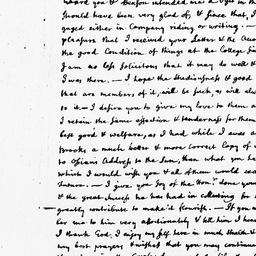 heard you & Deacon intended me a Vysit in the
Should have been very glad of, & since that, I
gaged either in Company riding or writing
pleasure that I received your Letter & the Acco
the good Condition of things at the College sin
I am no less solicitous that it may do well &
I was there. — I hope the Studiousness & good
that are members of it, will be such, as will alw
to it. — I desire you to give my love to them a
I retain the same affection & tenderness for them
best good & welfare, as I had, while I was a
Brooks a much better & more correct Copy of
to Ossians Address to the Sun, than what you ha
which I would wish you & all of them would
. — I give you Joy of the Honr. done you
& the great success he has had in collecting for
greatly contribute to make it flourish. — If you
ber me to him very affectionately & tell him I hear
I thank God, I enjoy my self here in much Health &
my best prayers & wishes that you may continue